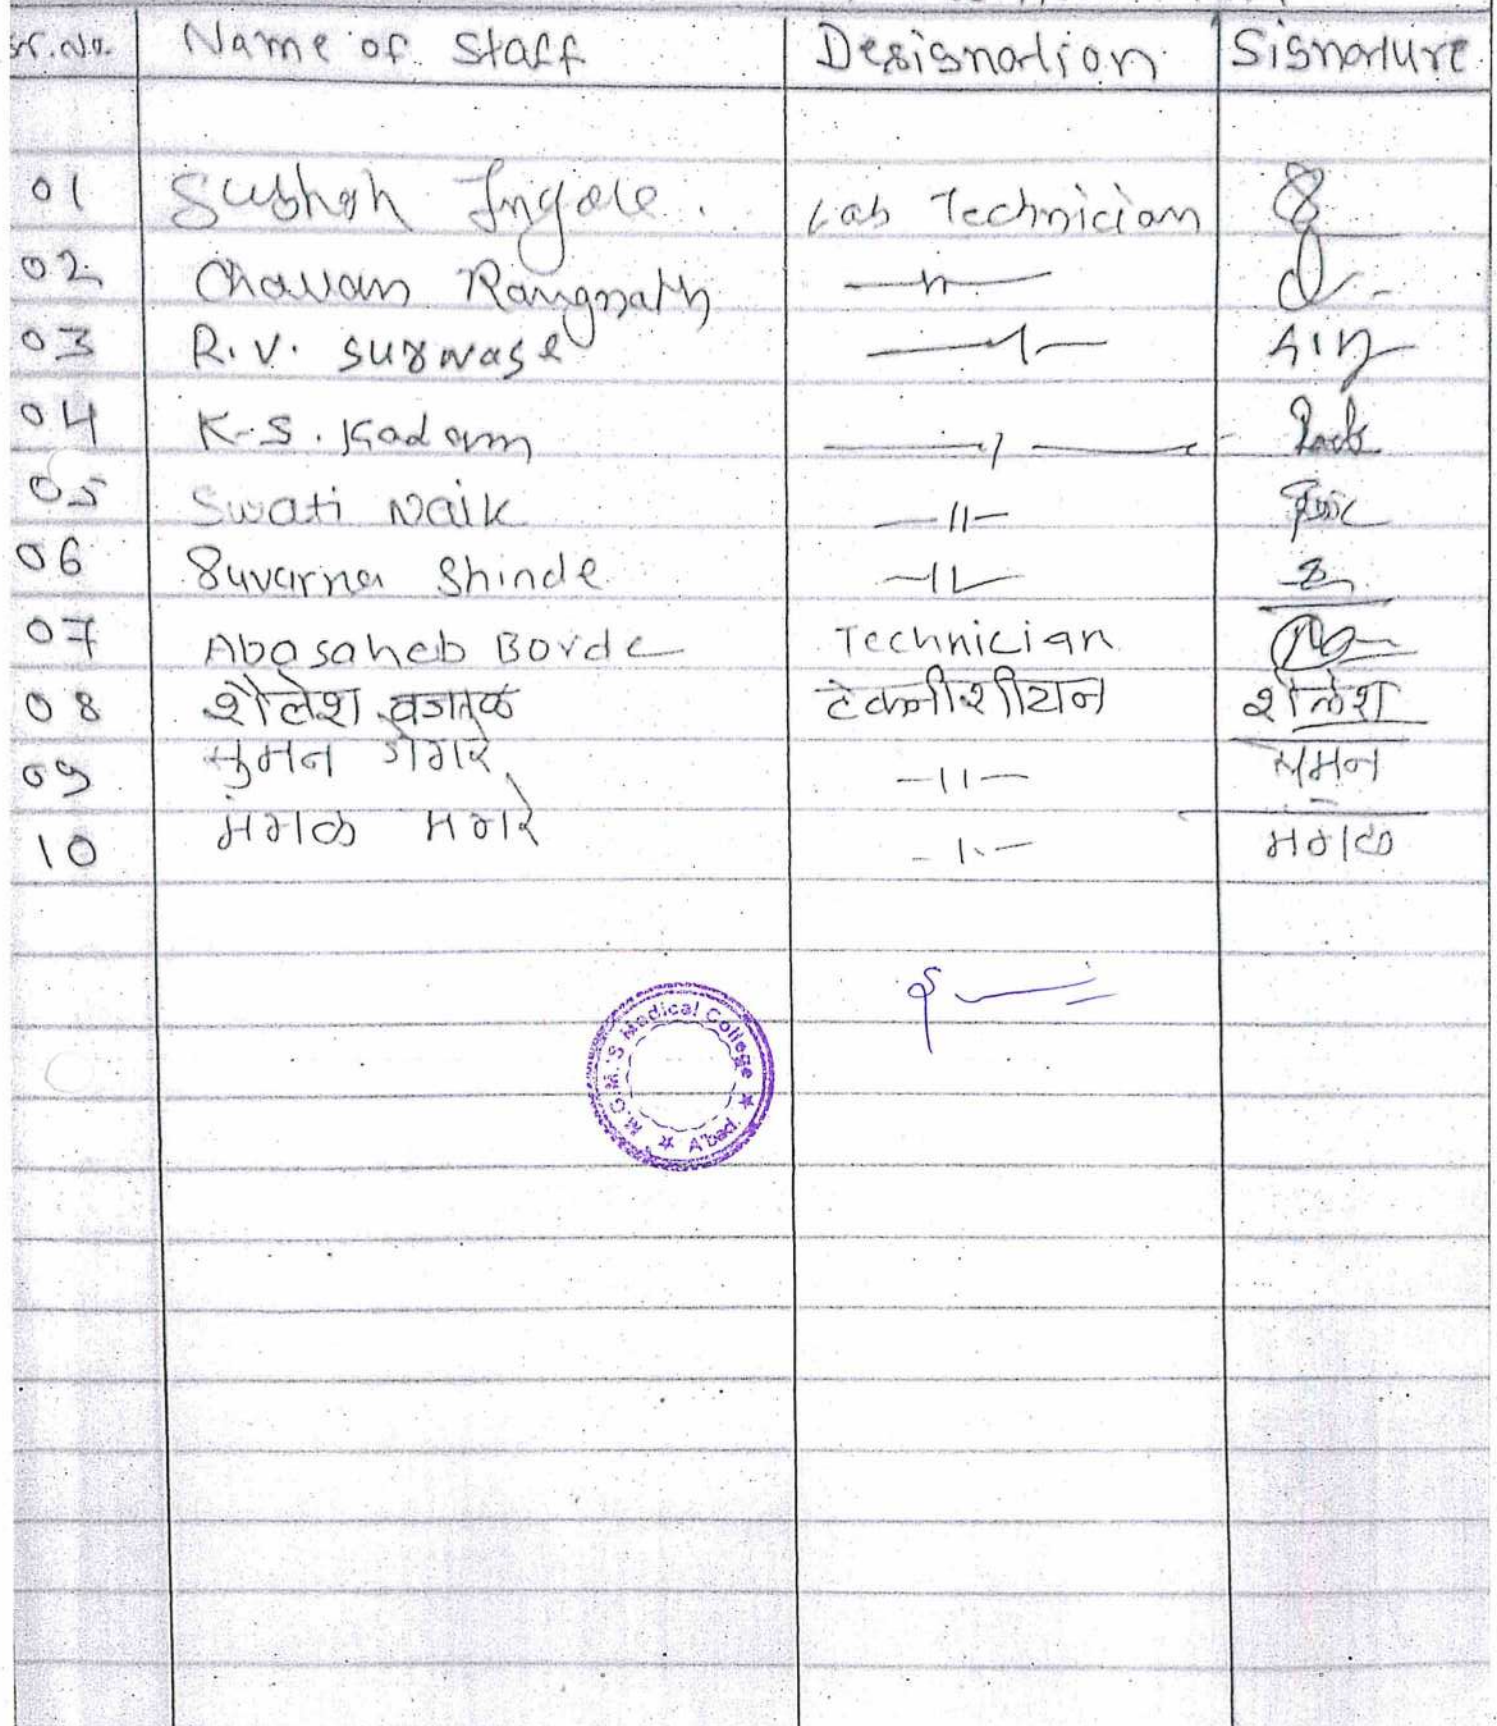 Sr. No. Name of Staff Designation Signature
01 Subhash Ingole. Lab Technician
02 Chavan Rangnath —"—
03 R.V. Surwase —"—
04 K.S. Kadam —"—
05 Swati Naik —11—
06 Suvarna Shinde —11—
07 Abasaheb Borde Technician
08 शैलेश टेक्नीशीयन शैलेश
09 सुमन गंगारे —11— सुमन
10 मंगळ मगरे —11— मंगळ
M.G.M.'S Medical College ★ A'bad. ★